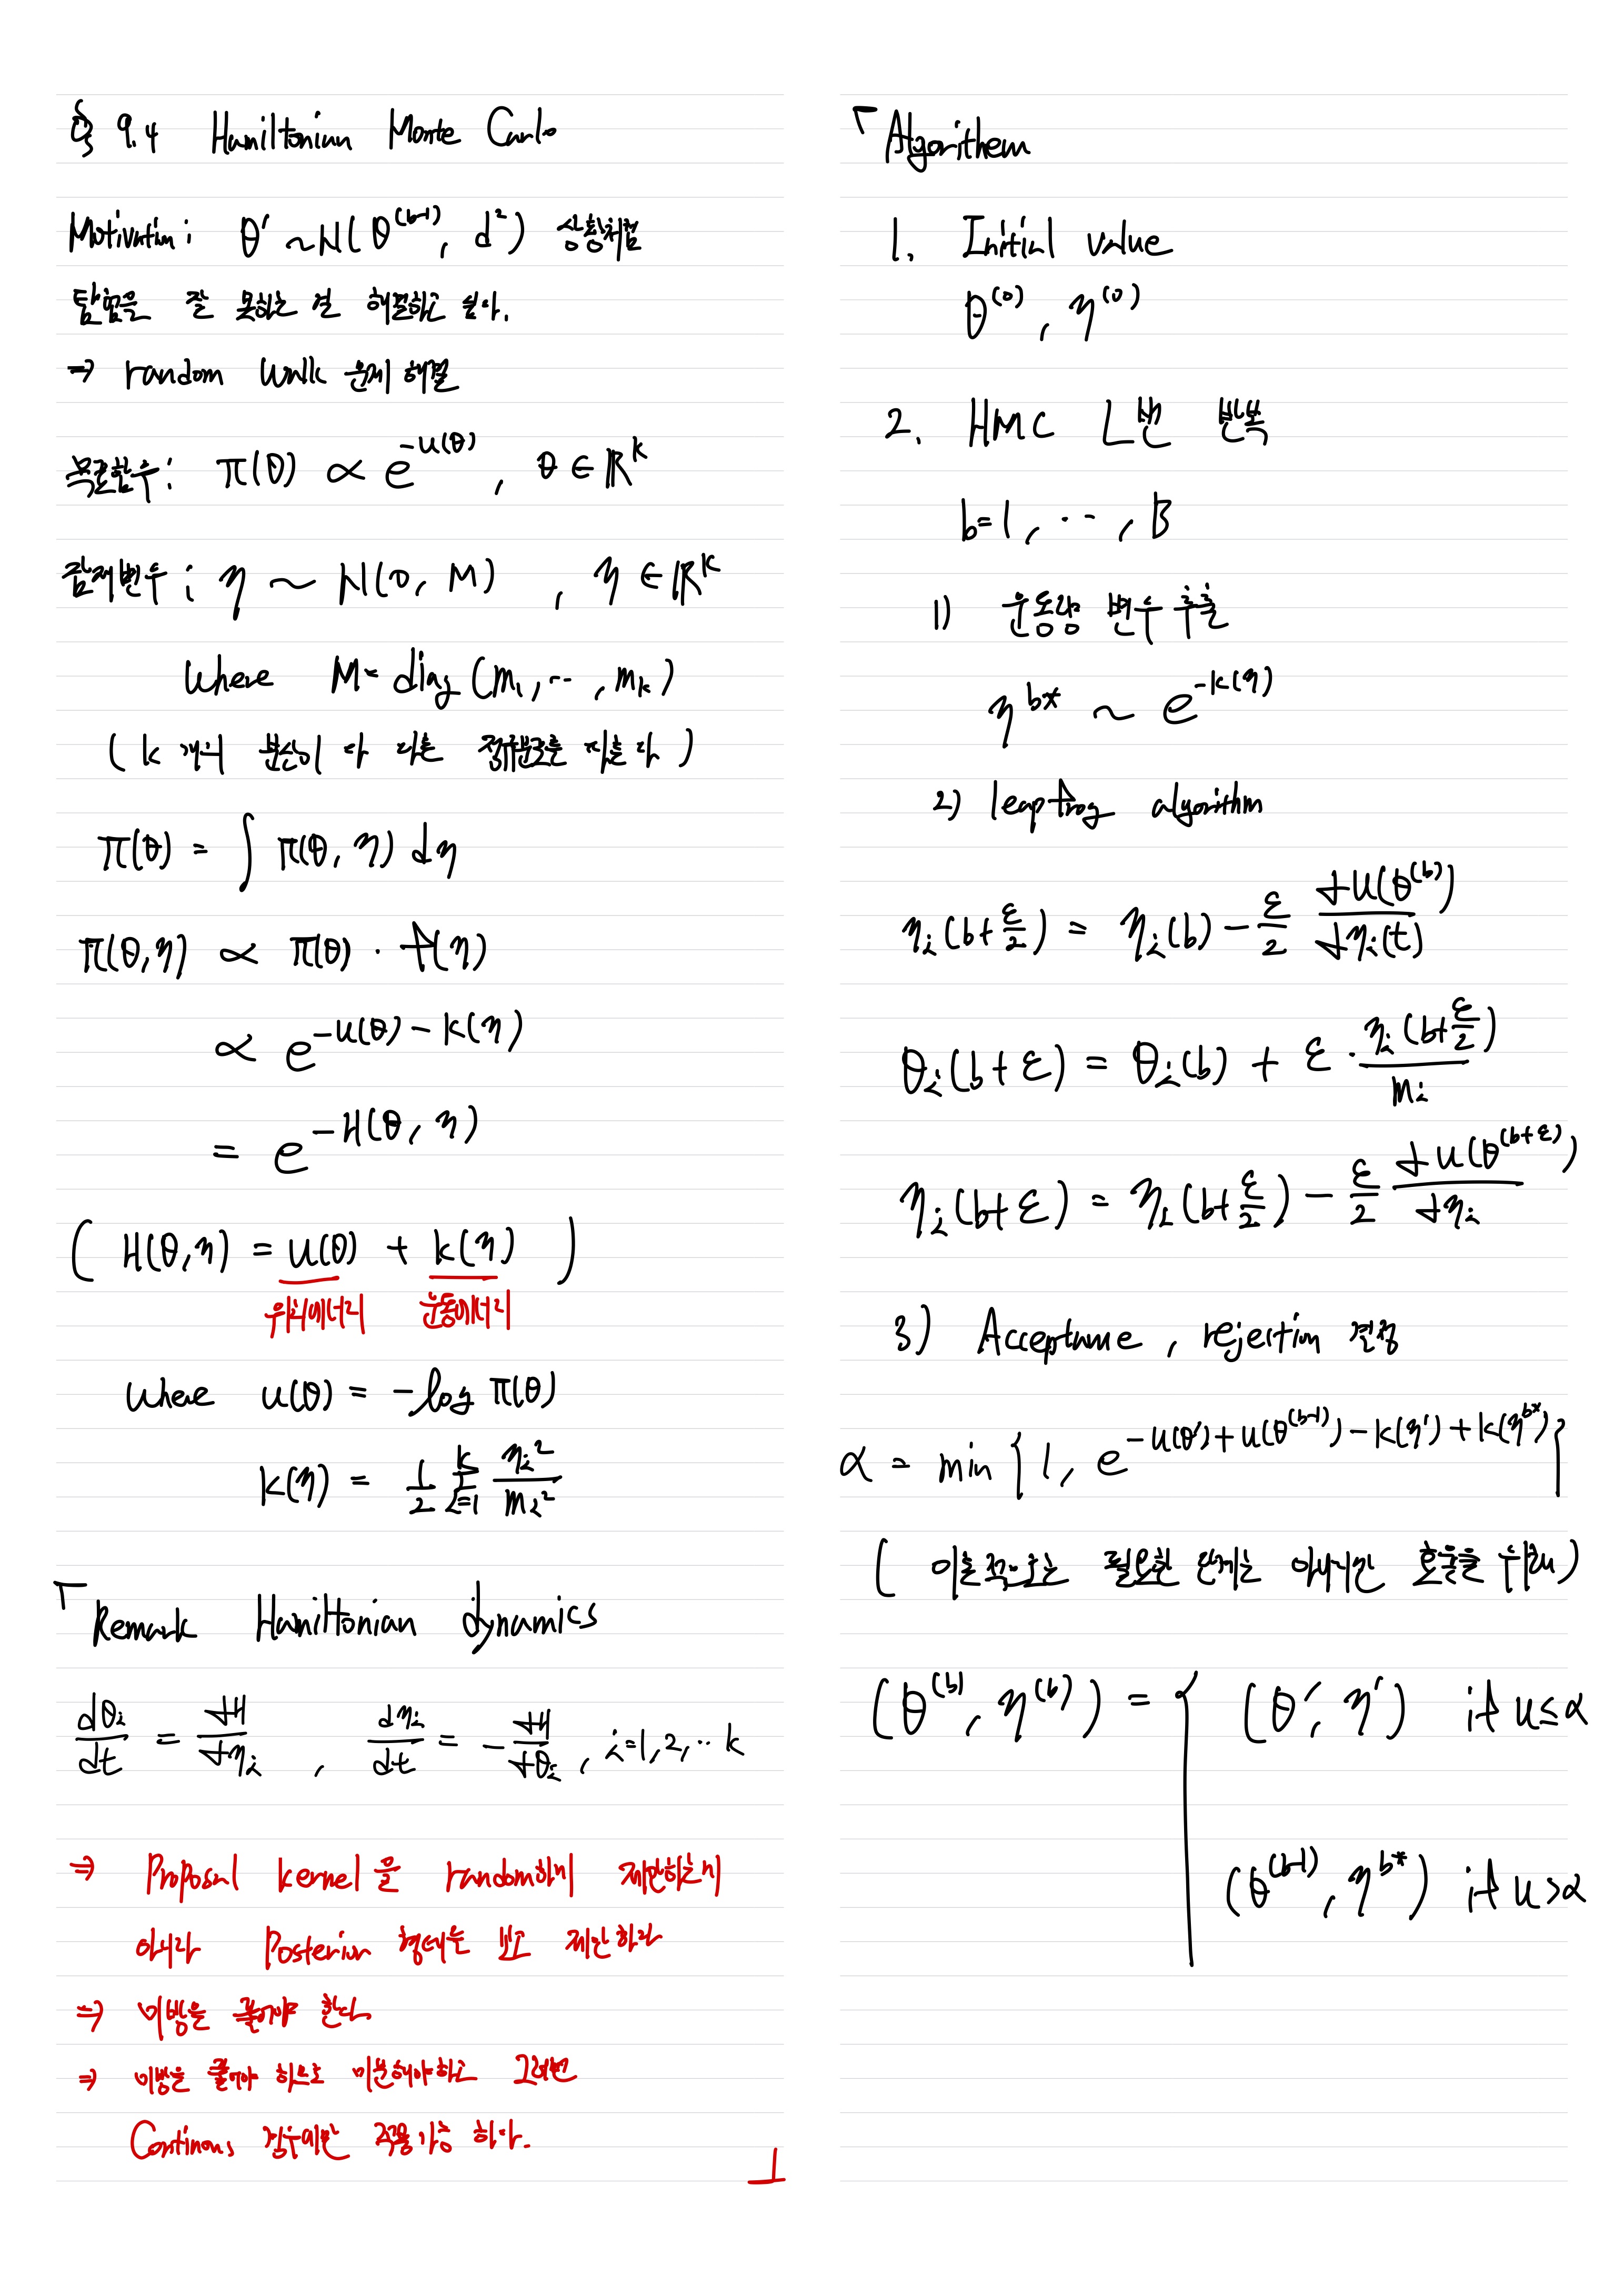 § 9.4 Hamiltonian Monte Carlo
Motivation: θ' ~ N(θ^(b-1), d²) 상황처럼
탐험을 잘 못하는 걸 해결하고 싶다.
⇒ random walk 문제 해결
목표함수: π(θ) ∝ e^{-U(θ)}, θ ∈ ℝ^k
잠재변수: η ~ N(0, M), η ∈ ℝ^k
where M = diag(m₁, ⋯, m_k)
( k 개의 분산이 다 다른 정규분포를 따른다 )
π(θ) = ∫ π(θ, η) dη
π(θ, η) ∝ π(θ) · f(η)
∝ e^{-U(θ) - K(η)}
= e^{-H(θ, η)}
( H(θ, η) = U(θ) + K(η) )
위치에너지 운동에너지
where U(θ) = -log π(θ)
K(η) = 1/2 Σ_{i=1}^{k} η_i²/m_i²
「Remark Hamiltonian dynamics
dθ_i/dt = ∂H/∂η_i , dη_i/dt = -∂H/∂θ_i , i=1, 2, ⋯ k
⇒ Proposal kernel을 random하게 제안하는게
아니라 Posterior 형태를 보고 제안하라
⇒ 미방을 풀어야 한다
⇒ 미방을 풀어야 하므로 미분해야하고 그러면
Continous 경우에만 적용가능 하다. 」
「Algorithem
1. Initial value
θ^(0), η^(0)
2. HMC L번 반복
b=1, ⋯, B
1) 운동량 변수 추출
η^{b*} ~ e^{-K(η)}
2) leapfrog algorithm
η_i(b+ε/2) = η_i(b) - ε/2 ∂U(θ^(b))/∂η_i(t)
θ_i(b+ε) = θ_i(b) + ε · η_i(b+ε/2)/m_i
η_i(b+ε) = η_i(b+ε/2) - ε/2 ∂U(θ^(b+ε))/∂η_i
3) Acceptance, rejection 결정
α = min { 1, e^{-U(θ')+U(θ^(b-1))-K(η')+K(η^{b*})} }
( 이론적으로는 필요한 단계는 아니지만 효율을 위해 )
(θ^(b), η^(b)) = { (θ', η') if u≤α
(θ^(b-1), η^{b*}) if u>α